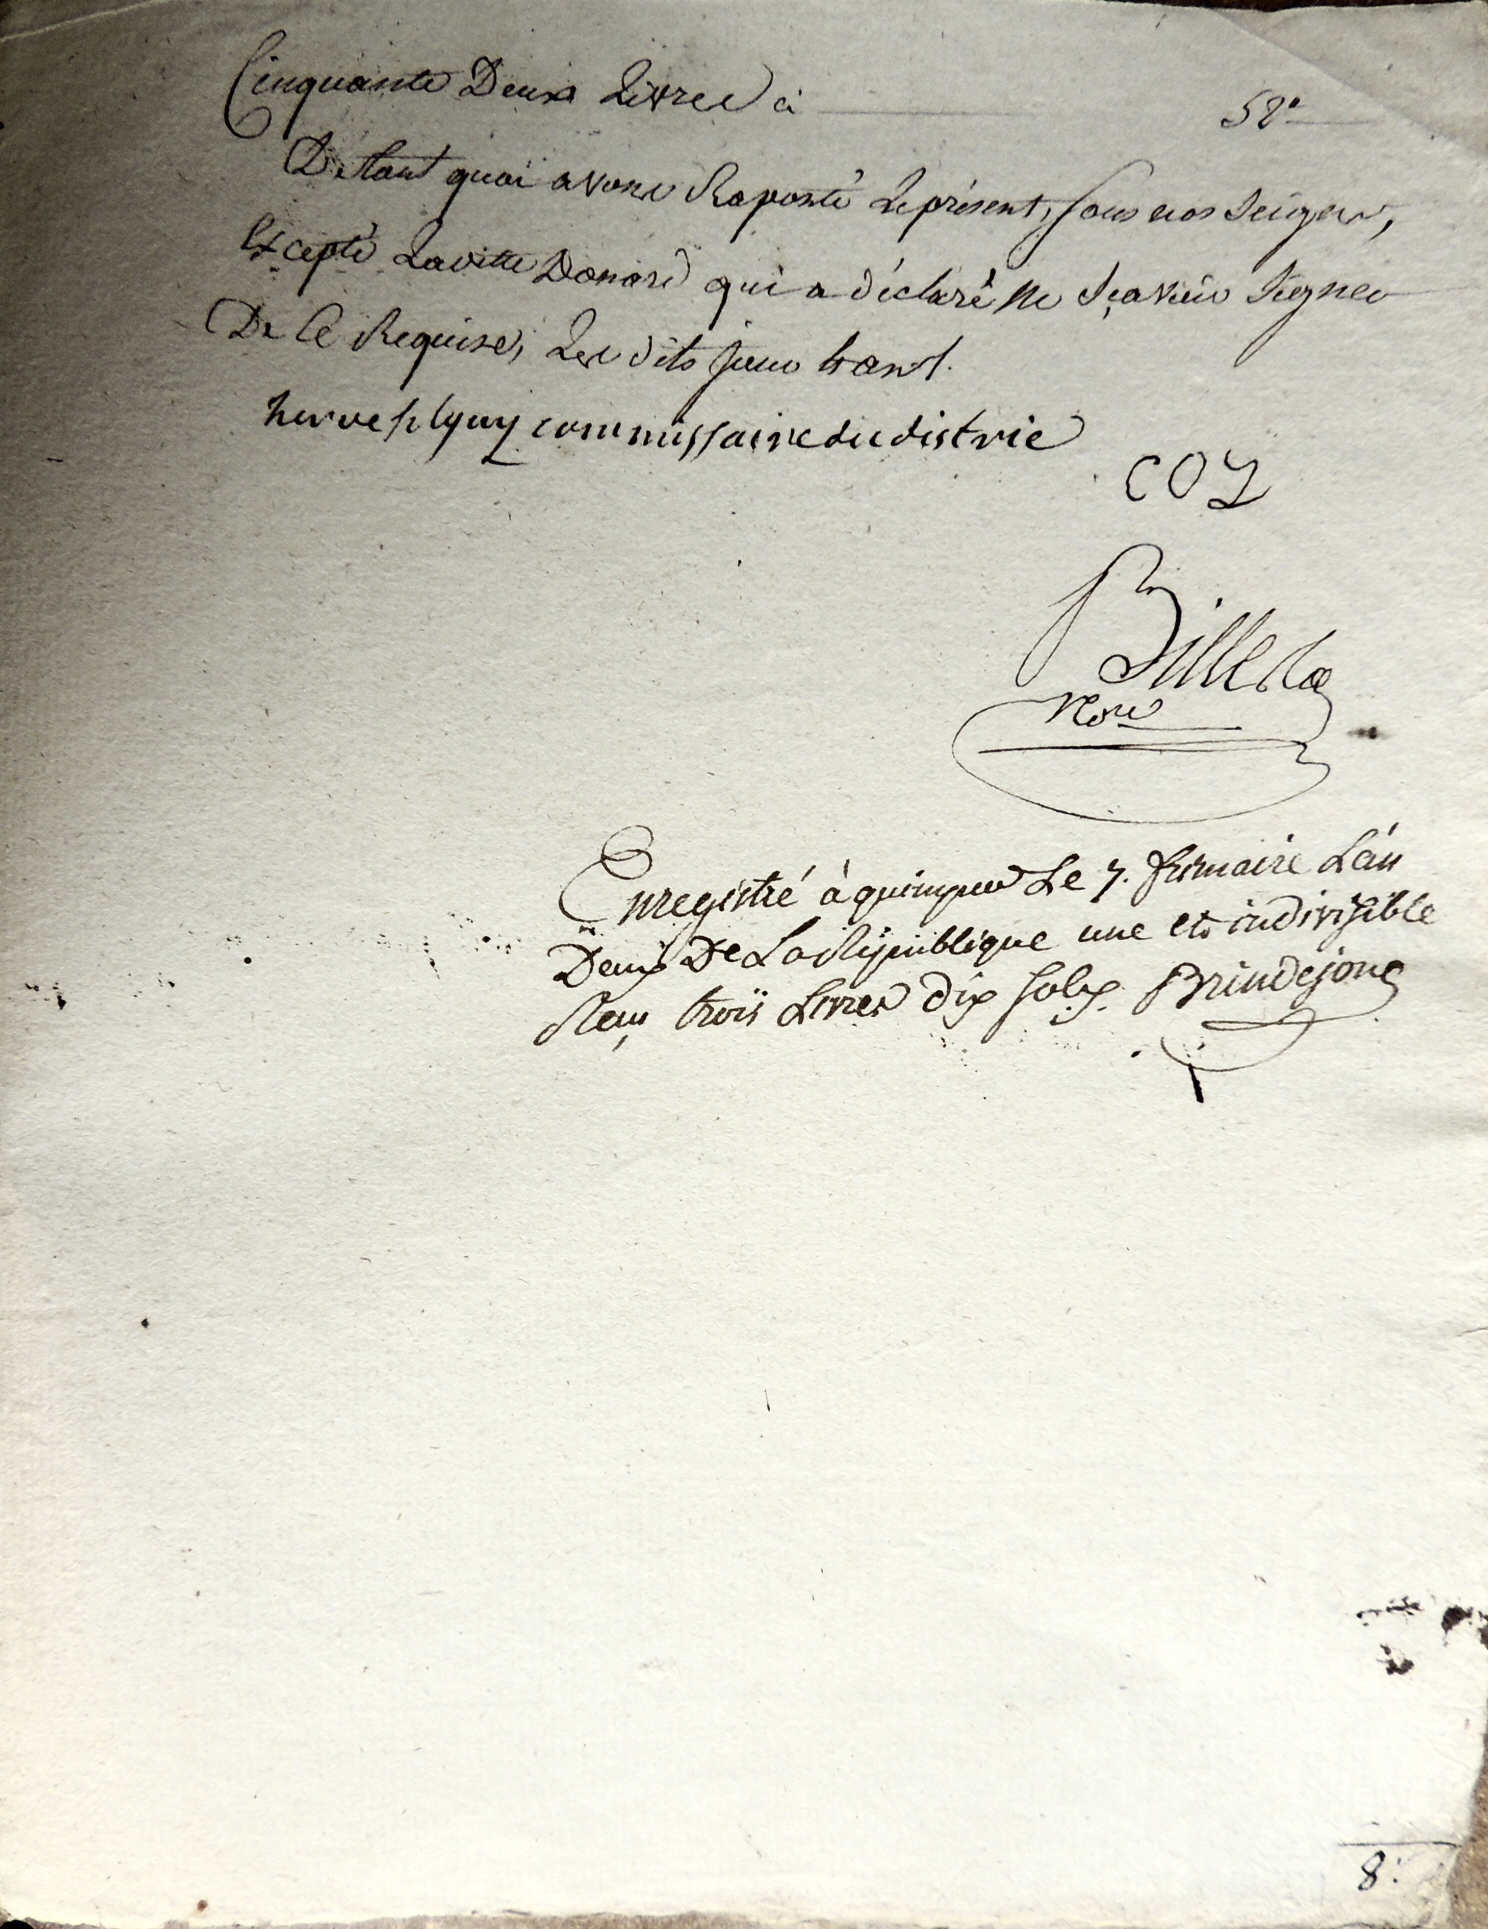 Cinquante Deux Livres ci 52#
De tout quoi avons Raporté Le présent, sous nos seigns,
Excepté La ditte Donard qui a déclaré ne sçavoir signer
De Ce Requise, Les dits jour et an
commissaire du distric
COZ
Bille
Nore
Enregistré à quimper Le 7. frimaire L'an
Deux De La République une et indivisible
Reçu trois Livres dix sols. Brindejonc
8.